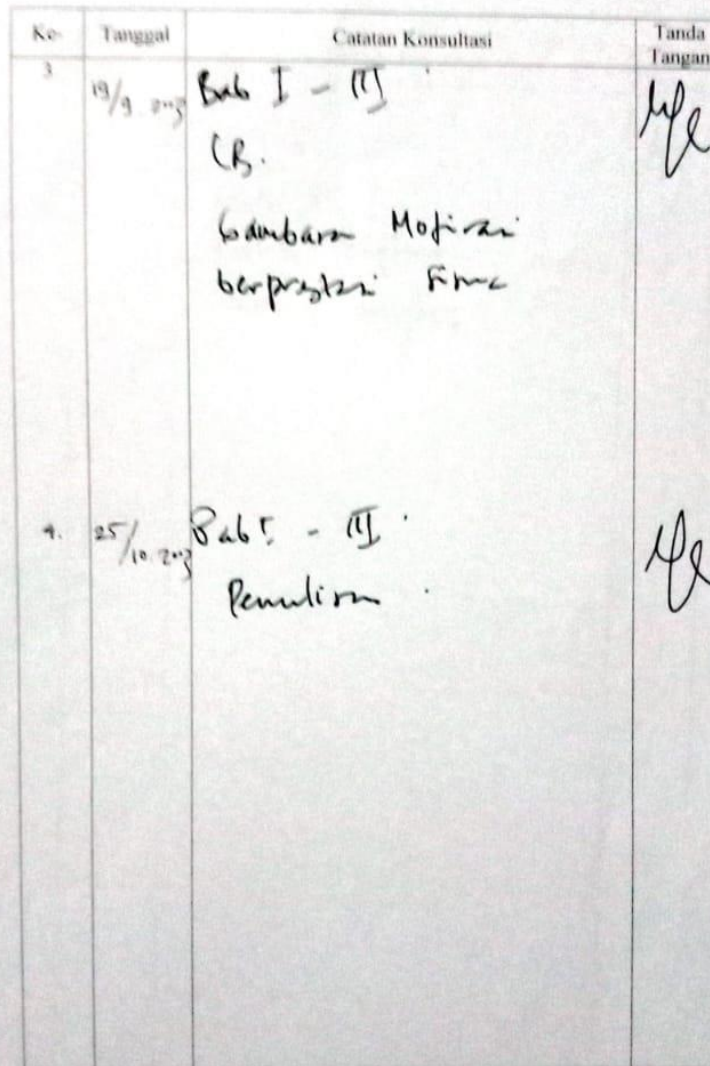 Ke- Tanggal Catatan Konsultasi Tanda Tangan
3 19/9 Bab I - III
Gambaran Motivasi
berprestasi
4. 25/10 Bab I - III
Penulisan